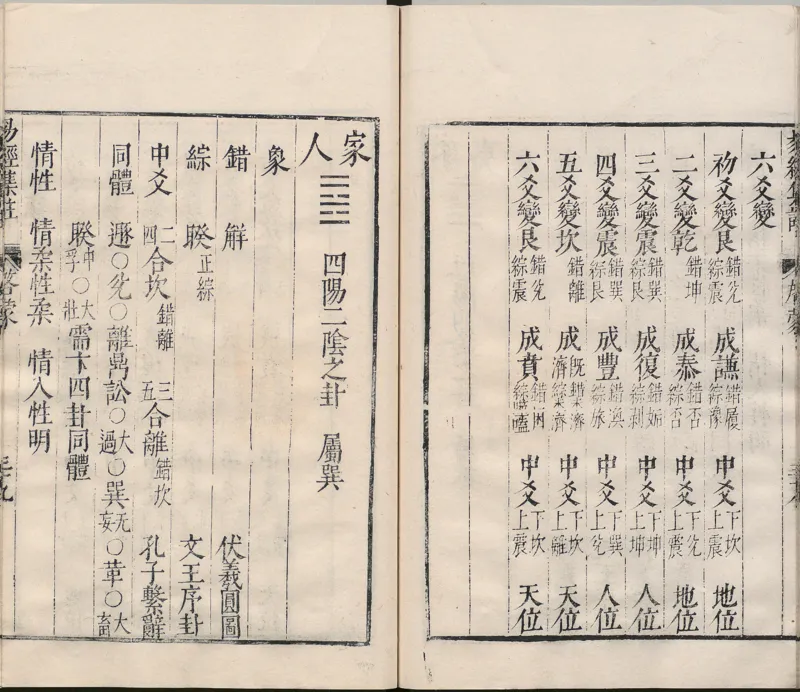 六爻變
初爻變艮 錯兌綜震 成謙 錯履綜豫 中爻 下坎上震 地位
二爻變乾 錯坤 成泰 錯否綜否 中爻 下兌上震 地位
三爻變震 錯巽綜艮 成復 錯姤綜剝 中爻 下坤上坤 人位
四爻變震 錯巽綜艮 成豐 錯渙綜旅 中爻 下巽上兌 人位
五爻變坎 錯離 成既濟 中爻 下坎上離 天位
六爻變艮 錯兌綜震 成賁 錯困綜噬嗑 中爻 下坎上震 天位
家人 ䷤ 四陽二陰之卦 屬巽
象
錯 解 伏羲圓圖
綜 睽 正綜 文王序卦
中爻 二四合坎 錯離 三五合離 錯坎 孔子繫辭
同體 遯○兌○離鼎訟○大過○巽无妄○革○大畜
睽中孚○大壯需卞四卦同體
情性 情柔性柔 情入性明
易經集註